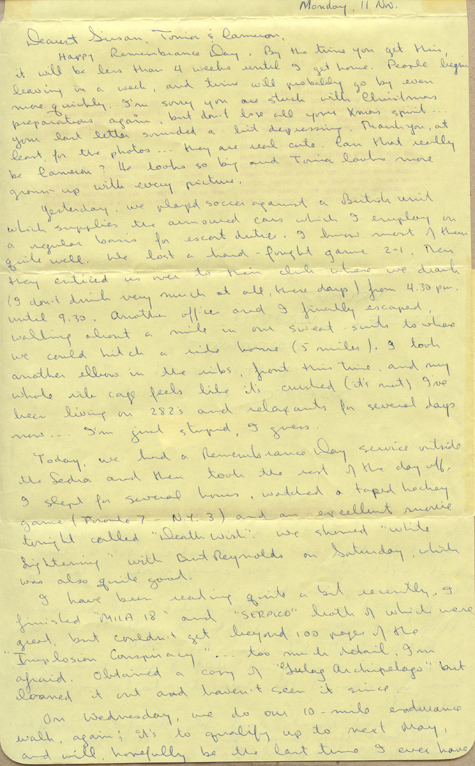 Monday, 11 Nov.
Dearest Susan, Tonia & Cameron,
Happy Remembrance Day. By the time you get this,
it will be less than 4 weeks until I get home. People begin
leaving in a week, and time will probably go by even
more quickly. I'm sorry you are stuck with Christmas
preparations again, but don't lose all your Xmas spirit...
your last letter sounded a bit depressing. Thank you, at
least, for the photos... they are real cute. Can that really
be Cameron? He looks so big and Tonia looks more
grown up with every picture.
Yesterday, we played soccer against a British unit
which supplies the armoured cars which I employ on
a regular basis for escort duties. I know most of them
quite well. We lost a hard-fought game 2-1. Then
they enticed us over to their club where we drank
(I don't drink very much at all, these days) from 4.30 pm.
until 9.30. Another officer and I finally escaped,
walking about a mile in our sweat suits to where
we could hitch a ride home (5 miles). I took
another elbow in the ribs, front this time, and my
whole rib cage feels like it's crushed (it's not) I've
been living on 282's and relaxants for several days
now... I'm just stupid, I guess.
Today, we had a Remembrance Day service outside
the Ledra and then took the rest of the day off.
I slept for several hours, watched a taped hockey
game (Toronto 7 - N.Y. 3) and an excellent movie
tonight called "Death Wish". We showed "White
Lightening" with Burt Reynolds on Saturday, which
was also quite good.
I have been reading quite a bit recently. I
finished "MILA 18" and "SERPICO" both of which were
great, but couldn't get beyond 100 pages of the
"Implosion Conspiracy"... too much detail, I'm
afraid. Obtained a copy of "Gulag Archipelago" but
loaned it out and haven't seen it since.
On Wednesday, we do our 10-mile endurance
walk, again; it's to qualify up to next May,
and will, hopefully be the last time I ever have